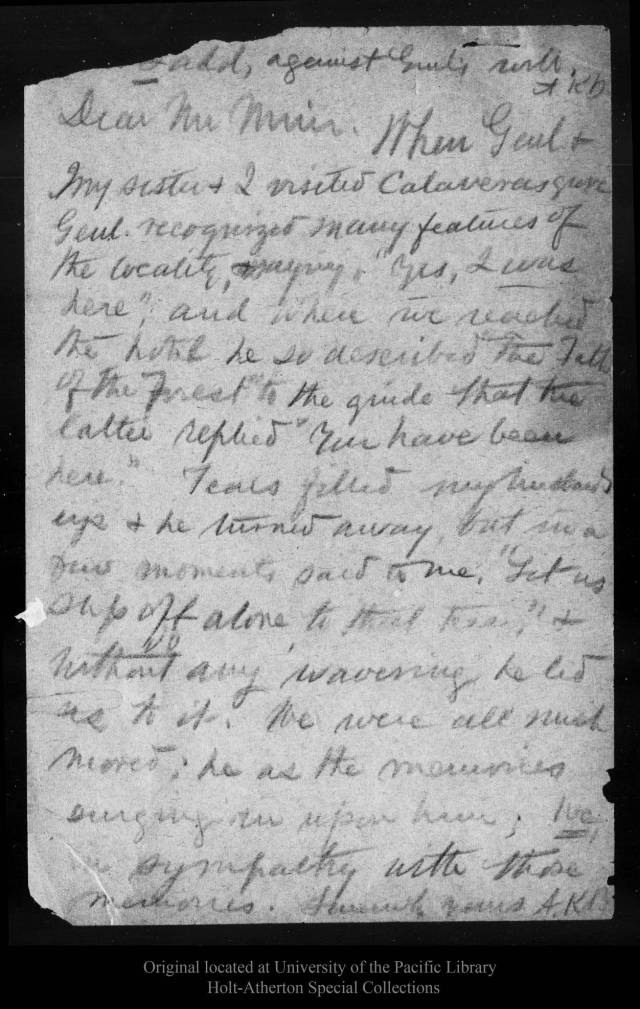 I add, against Genl's will,
A KB
Dear Mr Muir. When Genl &
My sister & I visited Calaveras grove
Genl. recognized many features of
the locality, saying, "Yes, I was
here", and when we reached
the hotel he so described "The Father
of the Forest" to the guide that the
latter replied "You have been
here." Tears filled my husband's
eyes & he turned away, but in a
few moments said to me, "Let us
slip off alone to that tree," &
without any wavering he led
us to it. We were all much
moved; he as the memories
surging in upon him; We,
in sympathy with those
memories. yours A.K.B.
Original located at University of the Pacific Library
Holt-Atherton Special Collections